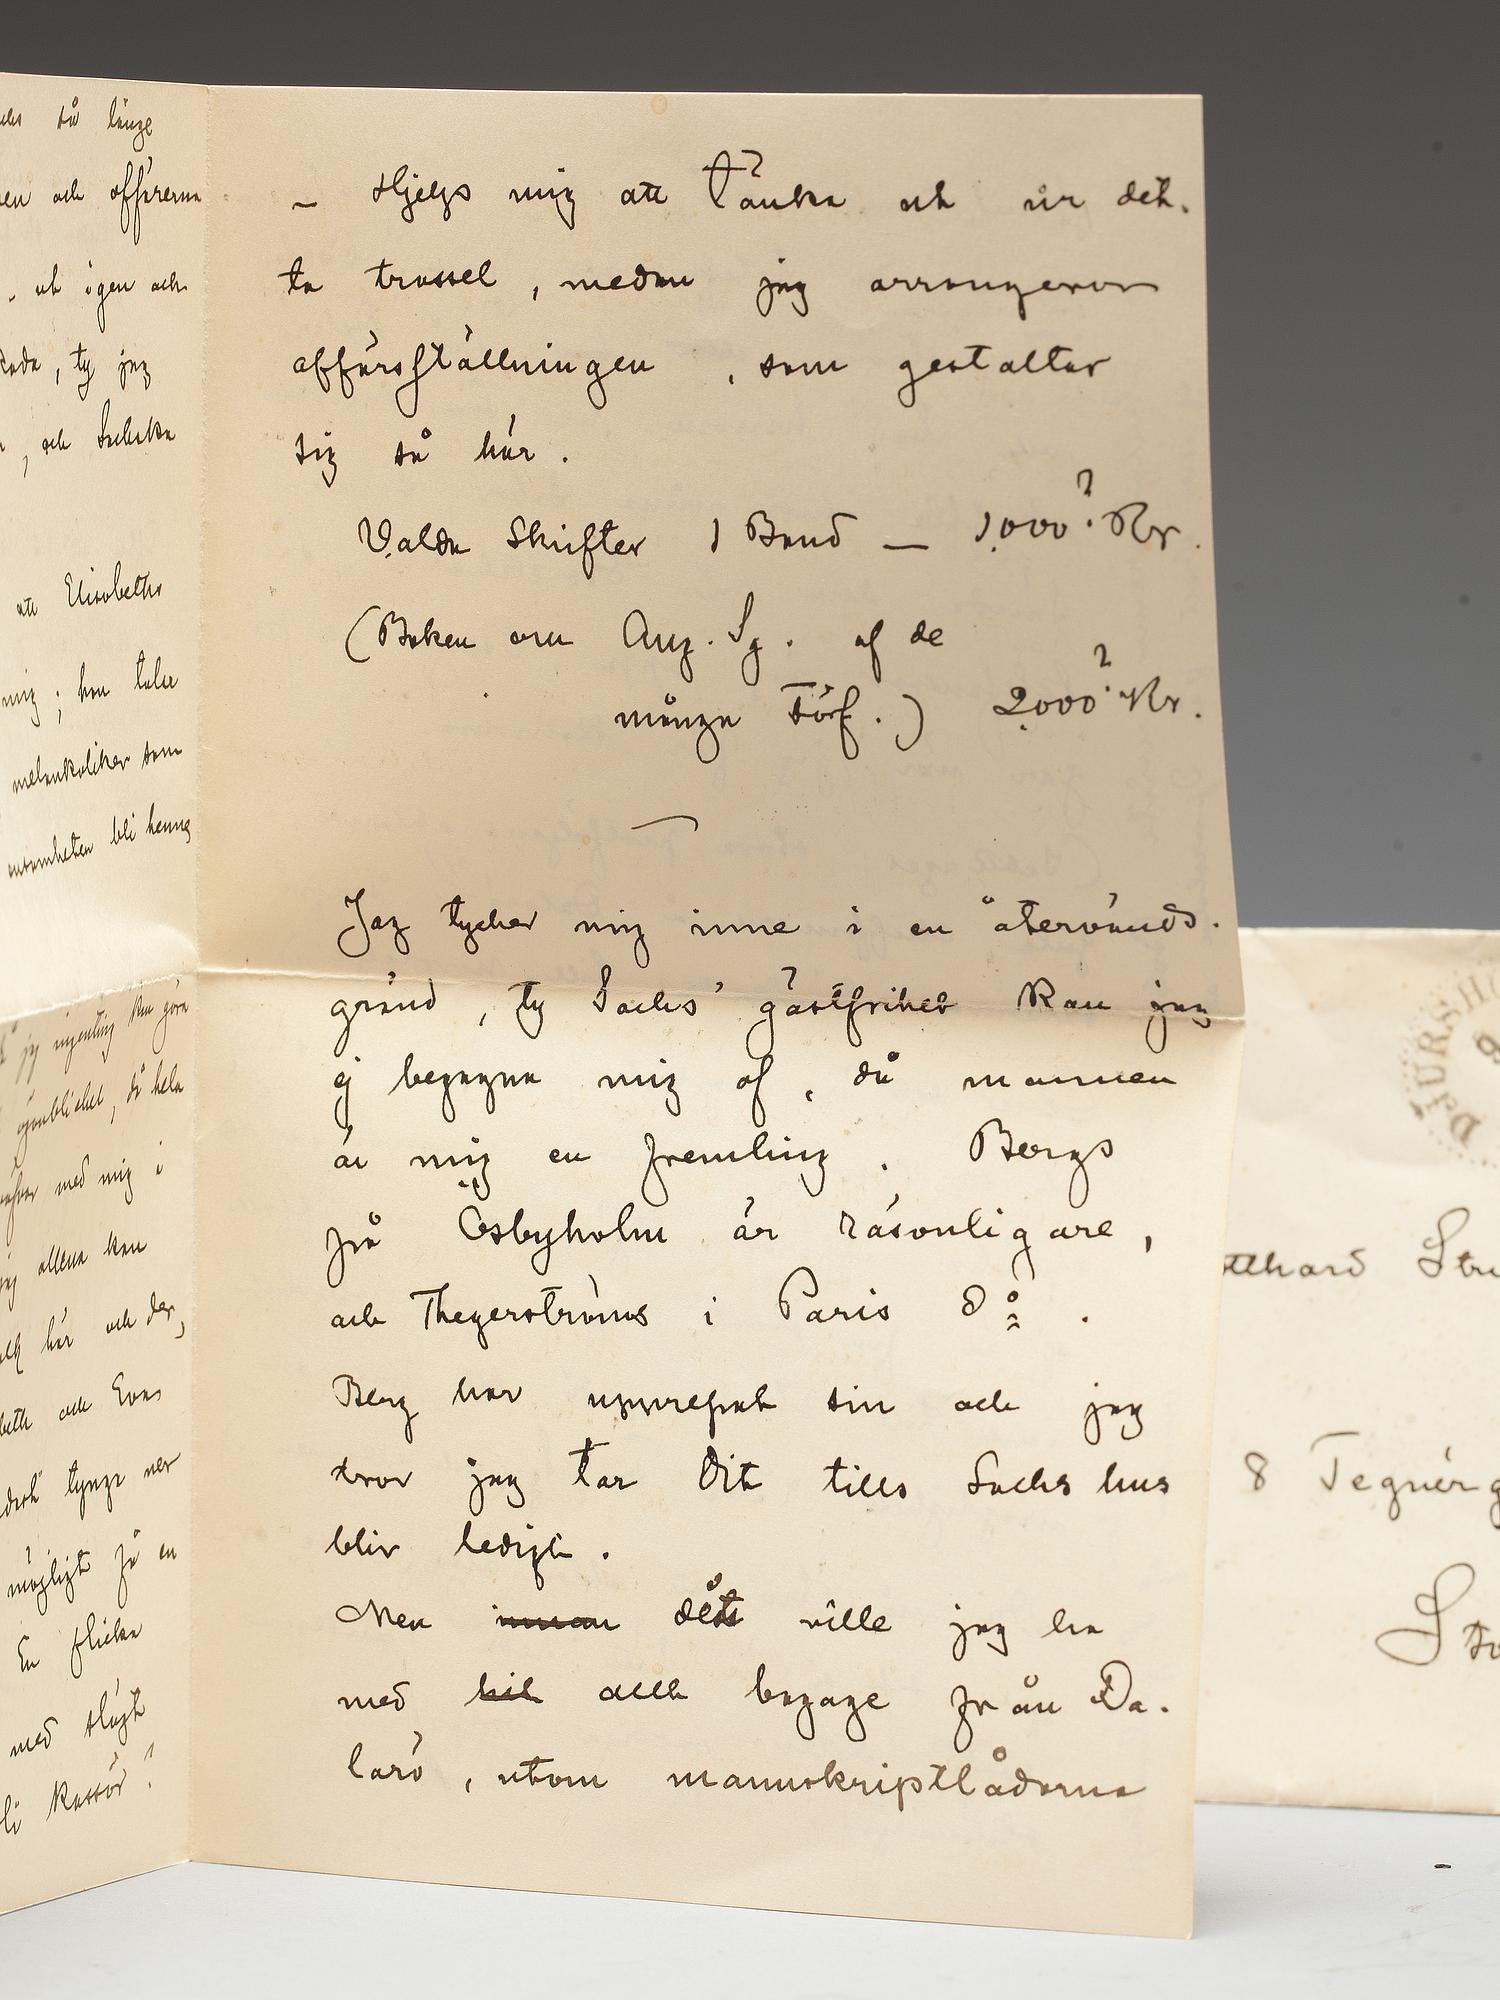 så länge
och affärerna
ut igen och
, ty jag
, och Sachska
att Elisabeths
mig ; hon talar
melankoliker som
bli hennes
jag ingenting kan göra
ögonblicket, då hela
med mig i
jag allena kan
här och der,
och Evas
tynger ner
möjligt få en
En flicka
med slägt
Kassör ?
– Hjelps mig att tänka ut ur det-
ta trassel , medan jag arrangerar
affärsställningen , som gestaltar
sig så här .
Valda Skrifter 1 Band — 1.000? Kr.
(Boken om Aug. Sg. af de
många Förf.) 2.000? Kr.
Jag tycker mig inne i en återvänds-
gränd , ty Sachs' gästfrihet kan jag
ej begagna mig af , då mannen
är mig en främling . Bergs
på Össbyholm är räsonligare ,
och Thegerströms i Paris do .
Berg har upprepat sin och jag
tror jag tar dit tills Sachs hus
blir ledigt .
Men innan dess ville jag ha
med hit allt bagage från Da-
larö , utom manuskriptlådorna
DJURSHO
8 Tegnérg
Sto